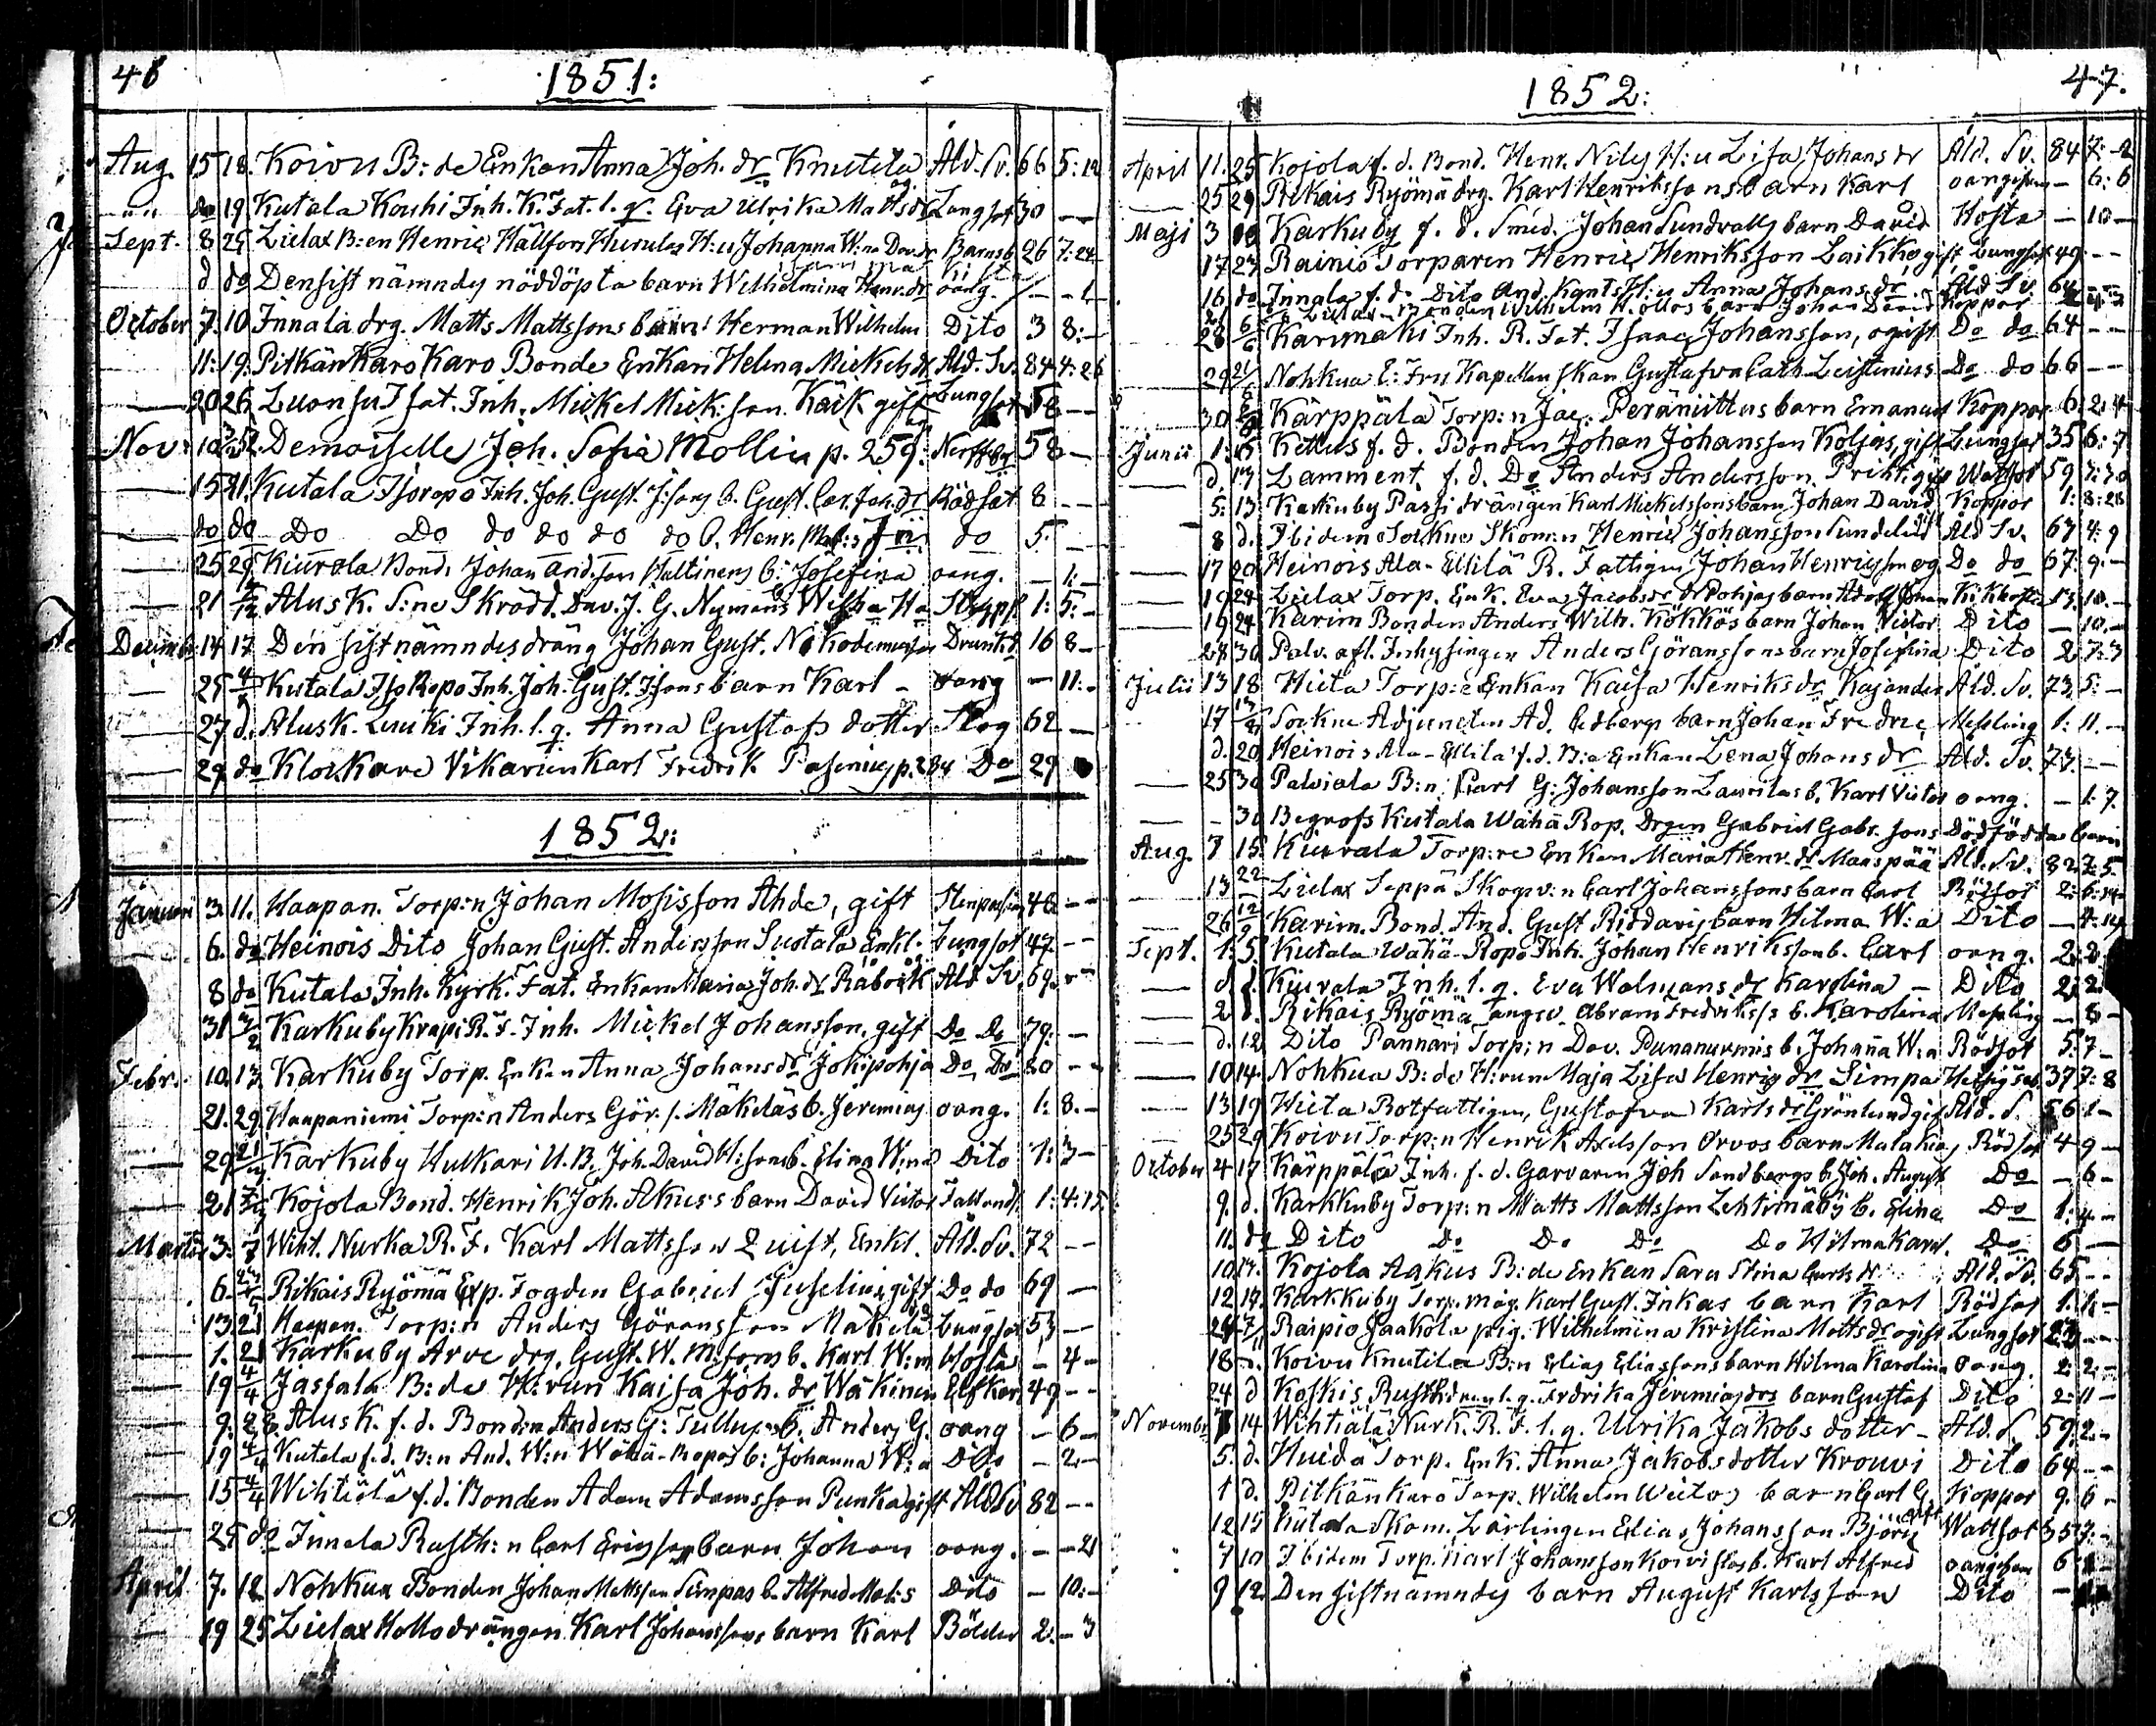 46
1851:
Aug. 15 18. Koivu B:de Enkan Anna Joh. dr Knutila Åld. Sv. 66 5:14
" " do 19 Kutala Kouhi Inh. K. Fat. l. q. Eva Ulrika Matts dr Lungsot 30 — —
Sept. 8 25 Lielax B:en Henric Hällfors Hurulas H:u Johanna W:na Dav. dr Barnsb. 26 7:24
d do Den sist nämndes nöddöpta barn Wilhelmina Henr. dr oang. — — 1
October 7. 10 Innala drg. Matts Mattssons barn Herman Wilhelm Dito 3 8: —
11: 19: Pitkänkaro Karo Bonde Enkan Helena Mickels dr Åld. Sv. 84 4:26
— 20 26 Luonsu I fat. Inh. Mickel Mick:son Käck gift Lungsot 58 — —
Nov: 10 Demoiselle Joh. Sofia Mollin p. 259. Nerffeber 58 —
— 15 21. Kutala Isoropo Inh. Joh. Gust. J:sons b. Gust. Rödsot 8 — —
— do do Do Do do do do do b. Henr. do 5. —
— 25 29 Kiurala Bond. Johan And.son b: Josefina oang. — 1: —
— 21 Alusk. S:ne Skrädd. Dav. J. G. Nymans 1: 5: —
Decemb: 14 17 Den sist nämndes dräng Johan Gust. Nikodemusson Drunk. 16 8 —
— 25 4/1 Kutala Iso Ropo Inh. Joh. Gust. J:sons barn Karl — oang — 11: —
— 27 d. Alusk. Inh. l. q. Anna Gustafs dotter Slag 62 —
— 29 do Klockare Vikarien Karl Fredrik Pasenius p. 284 Do 29
1852:
Januari 3. 11. Haapan. Torp:n Johan Mosisson Ahde, gift Stenpassion 46 — —
6. do Heinois Dito Johan Gust. Andersson Suotala Enkl. Lungsot 47 — —
8 do Kutala Inh. Kyrk. Fat. Enkan Maria Joh. dr Åld Sv. 69 —
31 Karkuby Krapi R. F. Inh. Mickel Johansson, gift Do Do 79: —
Febr. 10. 17. Karkuby Torp. Enkan Anna Johans dr Jokipohja Do, Do 80 — —
21. 29. Haapaniemi Torp:n Anders Gör. s. Mäkeläs b. Jeremias oang. 1: 8. —
— 29 21/ Karkuby Hulkari U.B. Joh. David H:sons b. Elina W:na Dito 1: 3 —
— 21 Kojola Bond. Henrik Joh. Akus:s barn David Victor 1: 4: 15
Martii 3. 7 Wiht. Nurka R. F. Karl Mattsson Quist, Enkl. Åld. Sv. 72 — —
6 Rikais Ryömä Exp. Fogden Gabriel Juselius gift Do do 69 —
13. 21 Haapan. Torp:n Anders Göransson Mäkelä Lungsot 53 —
1. 21 Karkuby Arve drg. Gust. W. M:sons b. Karl W:m Hosta — 4 —
19 4/4 Jaffala B:de H:run Kaisa Joh. dr Wäkinen 49 — —
9. 28 Alusk. f. d. Bonden Anders G: b. Anders G. oang — 6 —
19 4/4 Kutala f. d. B:n And. W:n Wähä-Ropos b: Johanna W:a Dito — 2. —
15 4/4 Wihtiälä f. d. Bonden Adam Adamsson Punka gift Åld Sv 82 — —
25 do Innala Rusth:n Carl Ericssons barn Johan oang. — — 21
April 7. 12 Nohkua Bonden Johan Mattsson Simpas b. Alfred Dito — 10: —
— 19 25 Lielax Hollo drängen Karl Johanssons barn Karl Bölder 2. — 3
47.
1852:
April 11. 25 Kojola f. d. Bond. Henr. Nilys H:u Lisa Johans dr Åld. Sv. 84 7: — 2
— 25 29 Rikais Ryömä drg. Karl Henrikssons barn Karl — 6: 6
Maji 3 Karkuby f. d. Smed. Johan Sundvalls barn David Hosta — 10 —
17 23 Rainio Torparen Henric Henriksson Laikko gift Lungsot 49 — —
16 do Innala f. d. Dito And. H:u Anna Johans dr Åld Sv 64
Lielax Bonden Wilhelm Hollos barn Johan David Koppor
28 6/6 Karimäki Inh. R. Fat. Isaac Johansson, ogift Do do 64 — —
— 29 21/ Nohkua E: Fru Kapellanskan Gustafva Cath. Leistenius Do do 66 — —
30 Kärppälä Torp:n Jac. Peräniittus barn Emanuel Koppor 6: 2: 4
Junii 1: Kettus f. d. Bonden Johan Johansson Koljas, gift Lungsot 35 6: 7
— d. 17 Lamment. f. d. Do Anders Andersson gift Watsot 59
5: 13 Karkuby Passi drängen Karl Mickelssons barn Johan David Koppor 1: 8: 28
8 d. Ibidem Solkue Skom:n Henric Johansson Åld Sv. 67 4: 9
— 17 20 Heinois Ala-Ellilä R. Fattigen Johan Henrijsson og. Do do 67: 9. —
— 19 24 Lielax Torp. Enk. Eva Jacobs dr Pohjas barn Adolf Johan Kikhosta 13. 10. —
— 19 24 Karim Bonden Anders Wilh. Kökkös barn Johan Victor Dito — 10. —
28 30 Palv. afl. Inhysingen Anders Göranssons barn Josephina Dito 2: 7: 3
Julii 13 18 Hieta Torp:e Enkan Kaisa Henriks dr Kajander Åld. Sv. 73. 5: —
17 Sockne Adjuncten Ad. Cedbergs barn Johan Fredric Messling 1: 11. —
d. 20 Heinois Ala-Ellilä f. d. B:e Enkan Lena Johans dr Åld. Sv. 73. — —
— 25 30 Palviala B:n Carl G: Johansson Laurilas b. Karl Victor oang. — 1: 7.
— — 30 Begrofs Kutala Wähä Rop. Drgen Gabriel Gabr. sons Dödfödda barn
Aug. 7 15 Kiurala Torp:re Enkan Maria Henr. dr Maaspää Åld. Sv. 82 7: 5.
— 13 22 Lielax Seppä Skogsv:n Carl Johanssons barn Carl Rödsot 2: 6: 14
26 12/9 Karim. Bond. And. Gust Riddaris barn Hilma W:a Dito — 4: 14
Sept. 1. 5. Kutala Wähä-Ropo Inh. Johan Henrikssons b. Carl oang. 2: 2:
— d d. Kiurala Inh. l. q. Eva Walmans dr Karolina — Dito 2: 2.
— 2 d. Rikais Ryömä Abram Fredriks/s b. Karolina Messling — 8 —
— d. 12 Dito Pannari Torp:n Dav. Punanurmis b. Johanna W:a Rödsot 5: 7 —
— 10 14 Nohkua B:de H:run Maja Lisa Henrijs dr Simpa 37 7: 8
— 13 19 Hieta Rotfattigen, Gustafva Karls dr Grönlund gift Åld. S. 56 1 —
— 25 29 Koivu Torp:n Henrik Axelsson Orvos barn Malakias Rödsot 4 9 —
October 4 17 Kärppälä Inh. f. d. Garvaren Joh Sandbergs b. Joh. August Do — 6 —
9. d. Karkkuby Torp:n Matts Mattsson Lehtimäkis b. Elina Do 1: 4 —
11. do Dito Do Do Do Do Hilma Karol. Do 6 —
10 17. Kojola Aakus B:de Enkan Sara Stina Carls dr Åld. Sv. 65 — —
12 17 Karkkuby Torp. mag. Karl Gust. Inkas barn Karl Rödsot 1. 1: —
24 7/11 Raipio Jaakola pig. Wilhelmina Kristina Matts dr ogift Lungsot 23 — —
18 d. Koivu Knutila B:n Elias Eliassons barn Hilma Karolina oang 2: 2: —
24 d Koskis l. q. Fredrika Jeremias drs barn Gustaf Dito 2: 11 —
November 7 14 Wihtiälä Nurk. R. F. l. q. Ulrika Jakobs dotter — Åld. S. 59: 2. —
5. d. Huida Torp. Enk. Anna Jakobsdotter Krouvi Dito 64 — —
1 d. Pitkänkaro Torp. Wilhelm barn Carl G. Koppor 9. 6 —
12 15 Kutala Skom. Lärlingen Elias Johansson Björn gift Wattsot 35 7: —
7 10 Ibidem Torp. Karl Johansson Koivistos b. Karl Alfred 6
9 12. Den sistnämndes barn August Karlsson Dito —